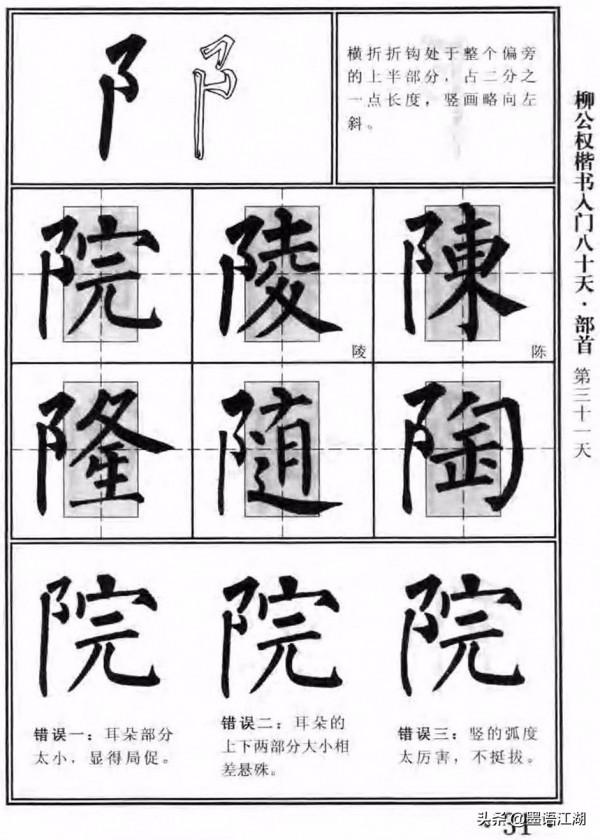 阝 阝
横折折钩处于整个偏旁
的上半部分，占二分之
一点长度，竖画略向左
斜。
柳公权楷书入门八十天·部首 第三十一天
院 陵 陳
陵 陈
隆 随 陶
院 院 院
错误一：耳朵部分
太小，显得局促。
错误二：耳朵的
上下两部分大小相
差悬殊。
错误三：竖的弧度
太厉害，不挺拔。
31
头条@墨语江湖